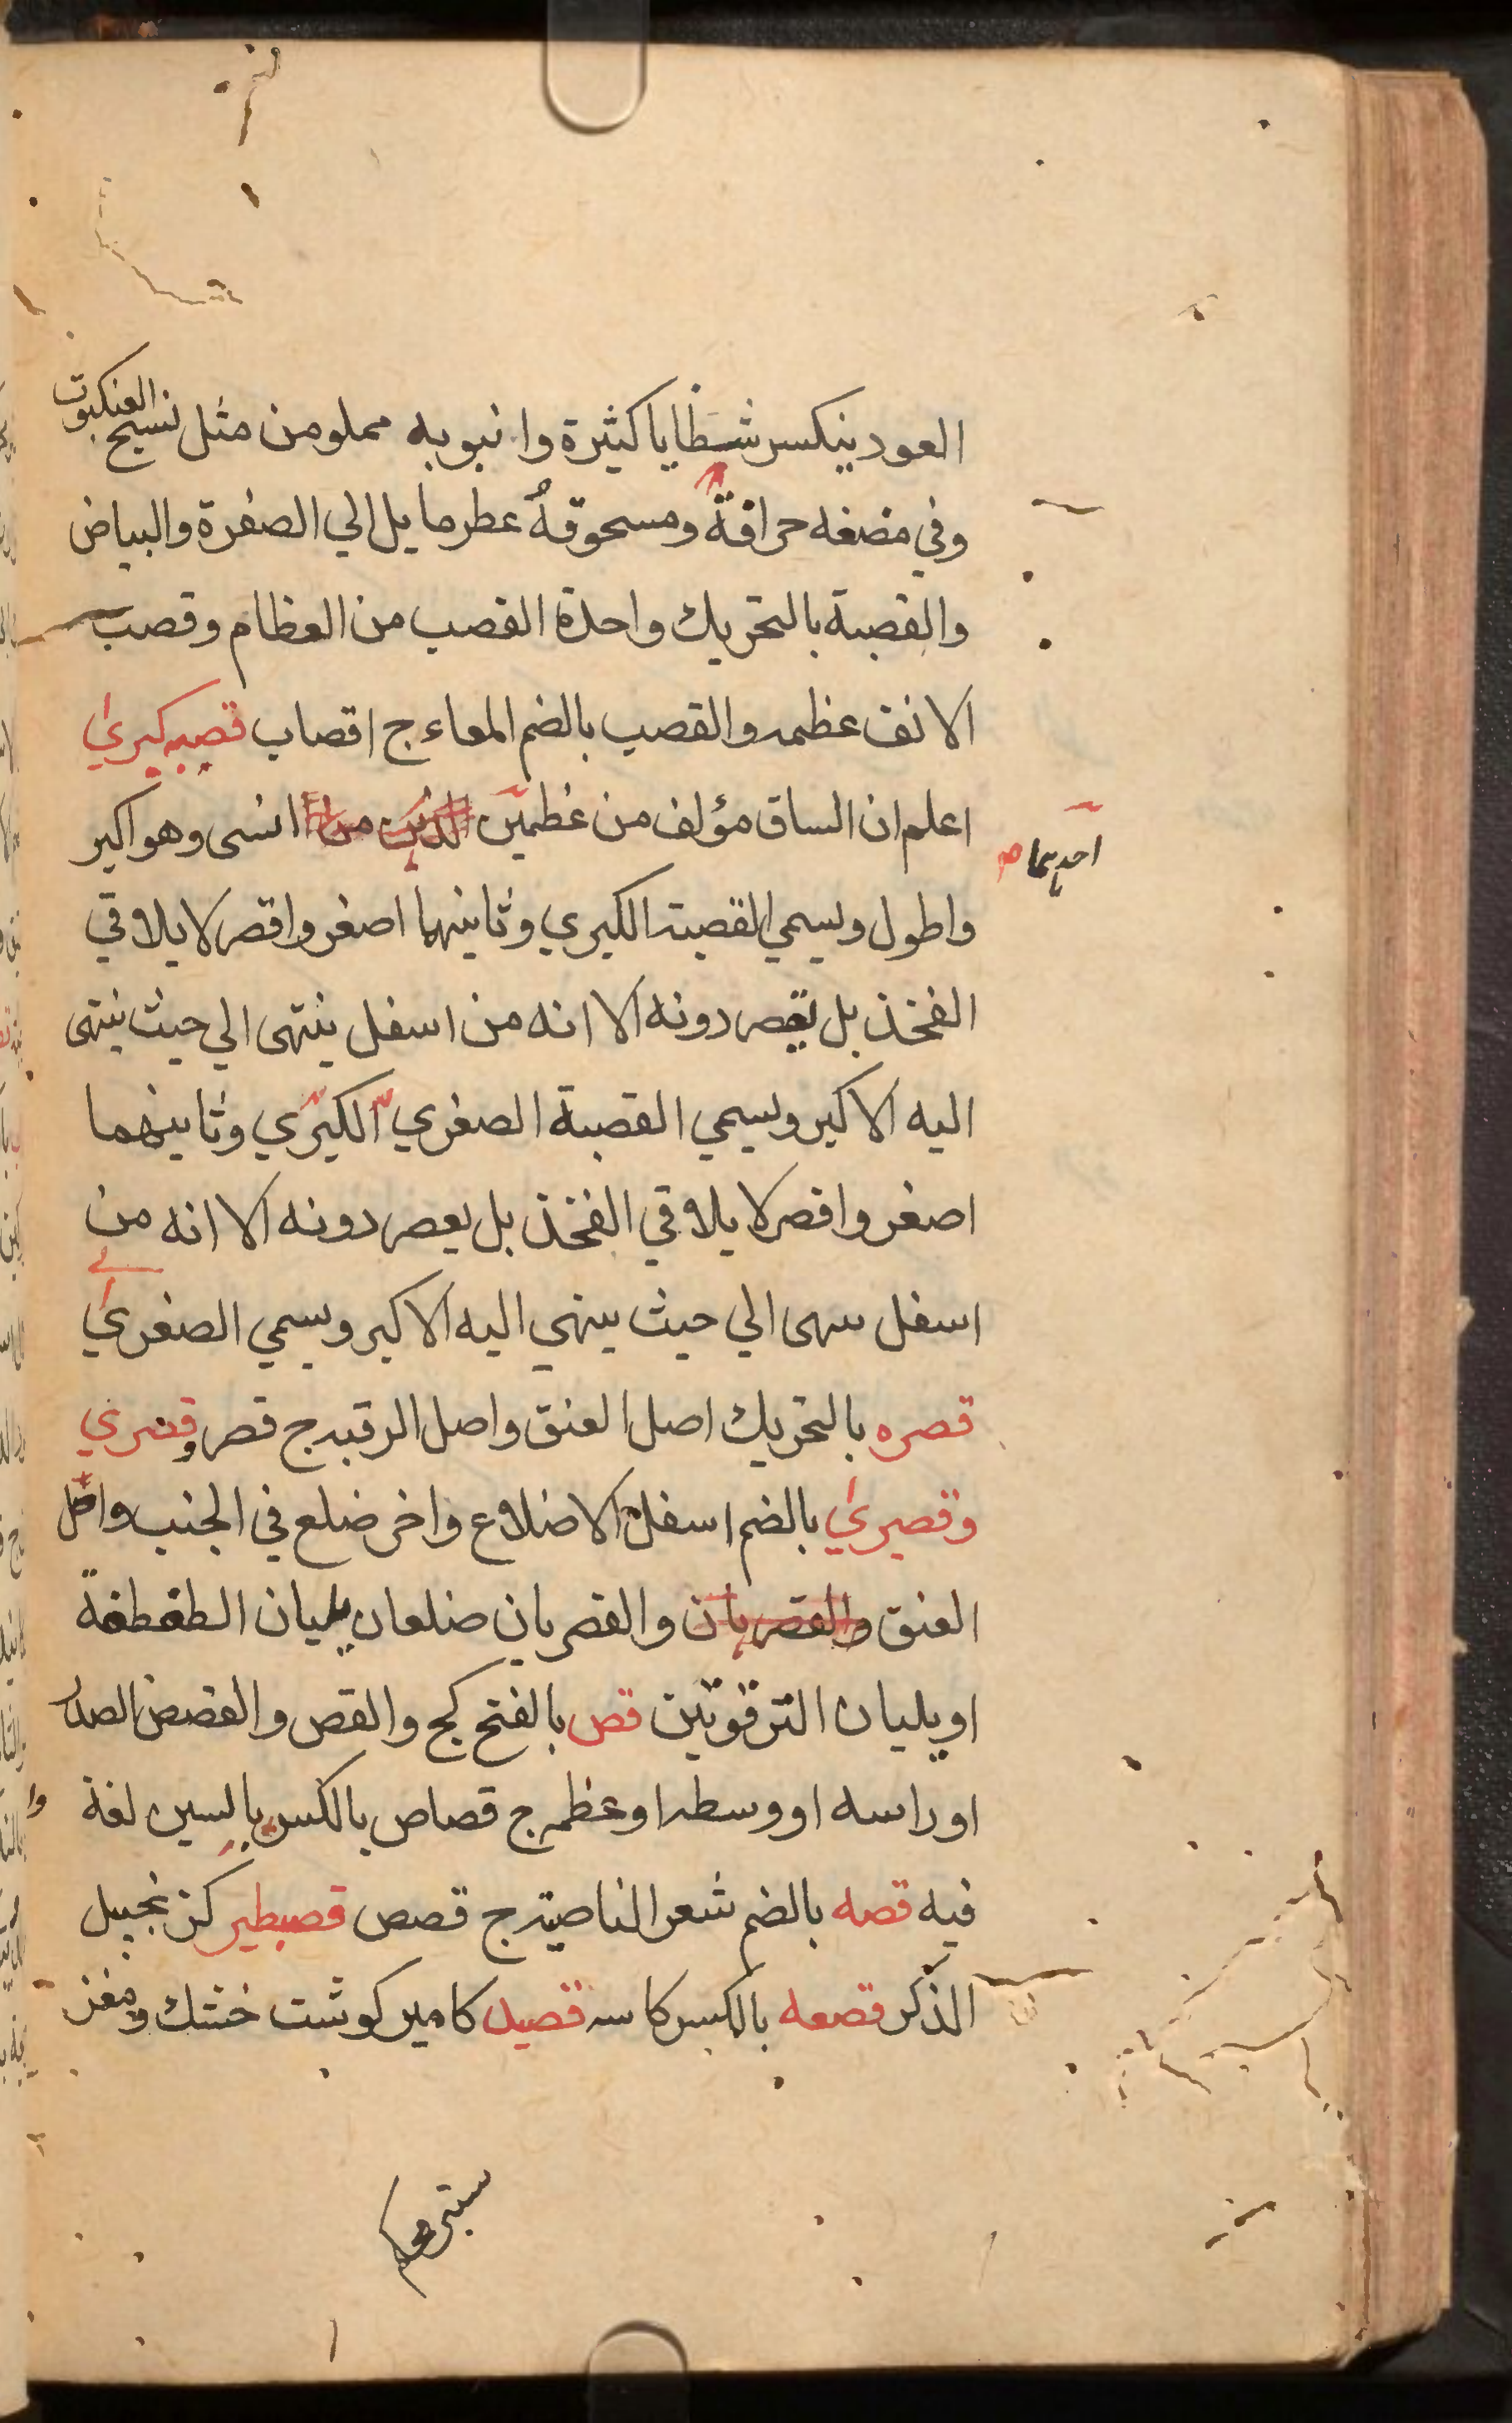 العود ينكسر شظايا كثيرة وانبوبه مملو من مثل نسيج العنكبوت
وفي مضغه حرافة ومسحوقه عطر مايل الي الصفرة والبياض
والقصبة بالتحريك واحدة القصب من العظام وقصب
الانف عظمه والقصب بالضم المعاء ج اقصاب قصبه كبريٰ
اعلم ان الساق مؤلف من عظمين انسى وهو اكبر
احديهما صح
واطول ويسمي القصبة الكبري وثانيهما اصغر واقصر لا يلاقي
الفخذ بل يقصر دونه الا انه من اسفل ينتهى الي حيث ينتهى
اليه الاكبر ويسمي القصبة الصغري الكبري وثانيهما
اصغر واقصر لا يلاقي الفخذ بل يعصر دونه الا انه من
اسفل سهى الي حيث ينهي اليه الاكبر ويسمي الصغريٰ
قصره بالتحريك اصل العنق واصل الرقبه ج قصر وقصري
وقصيريٰ بالضم اسفل الاضلاع واخر ضلع في الجنب واصل
العنق والقصريان والقصريان ضلعان يليان الطفطفة
او يليان الترقوتين قص بالفتح كج والقص والقصص الصدر
او راسه او وسطه او عظمه ج قصاص بالكسر بالسين لغة
فيه قصه بالضم شعر الناصية ج قصص قصبطير كزنجبيل
الذكر قصعه بالكسر كاسه قصيد كامير كوشت خشك ومغز